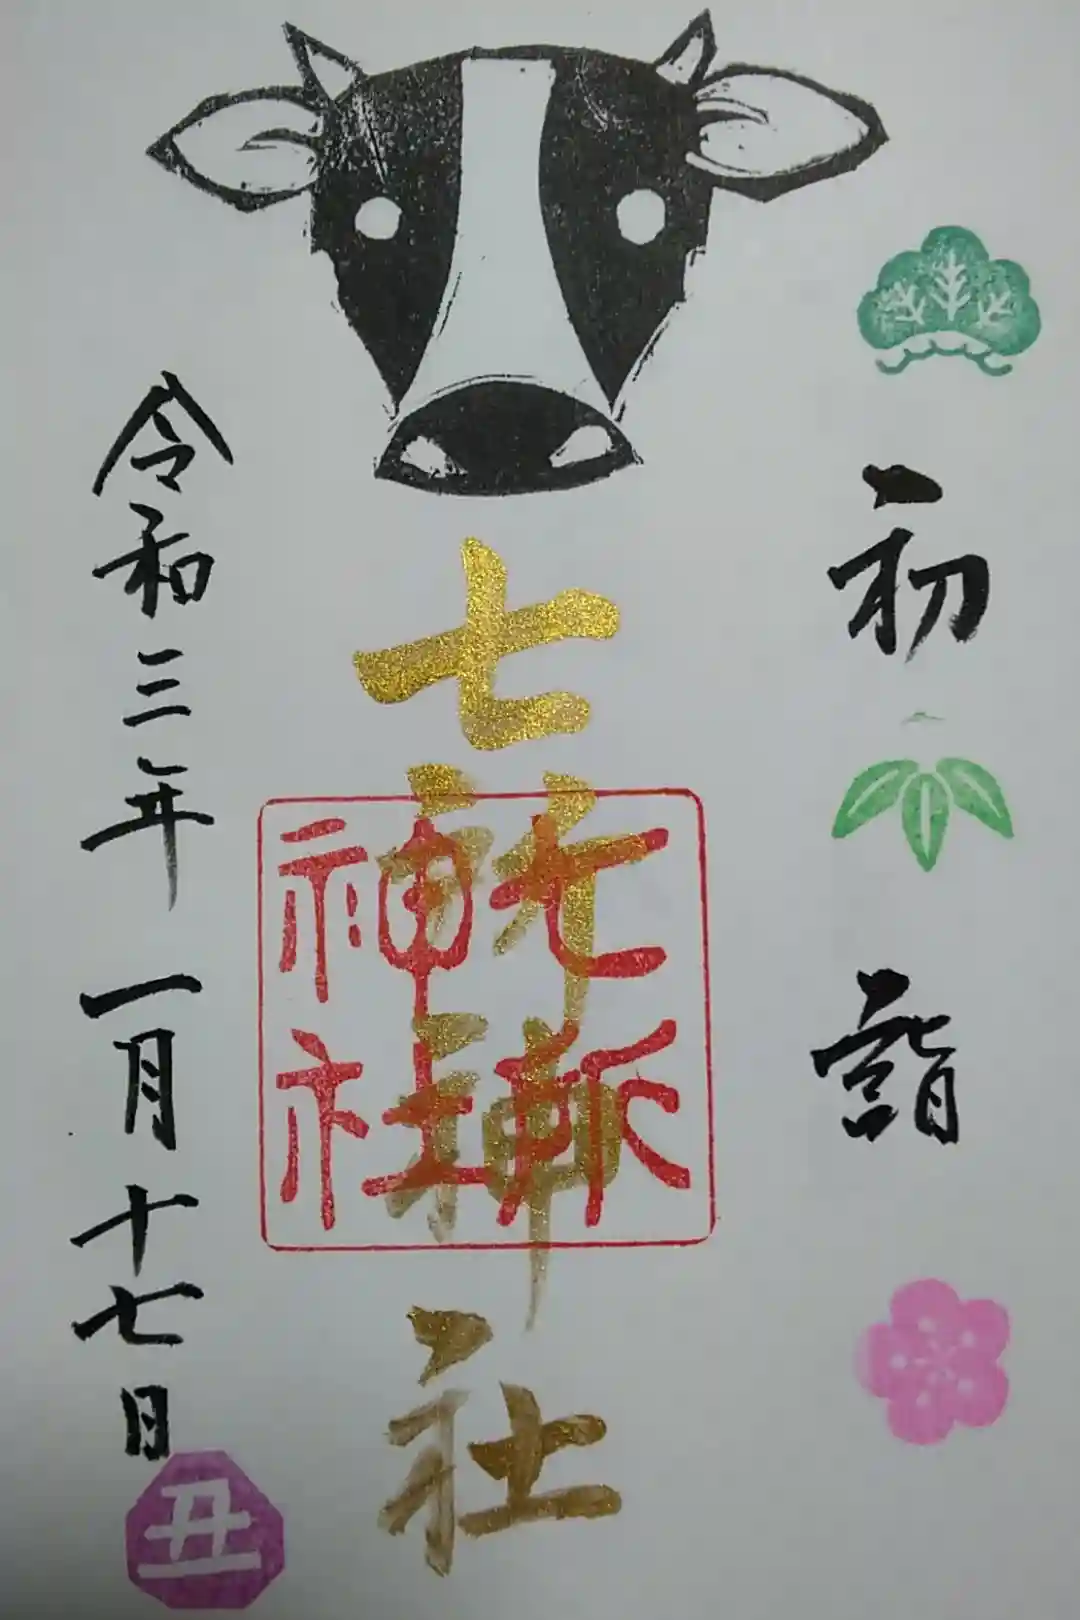 初詣
七所神社
七所
神社
令和三年一月十七日
丑